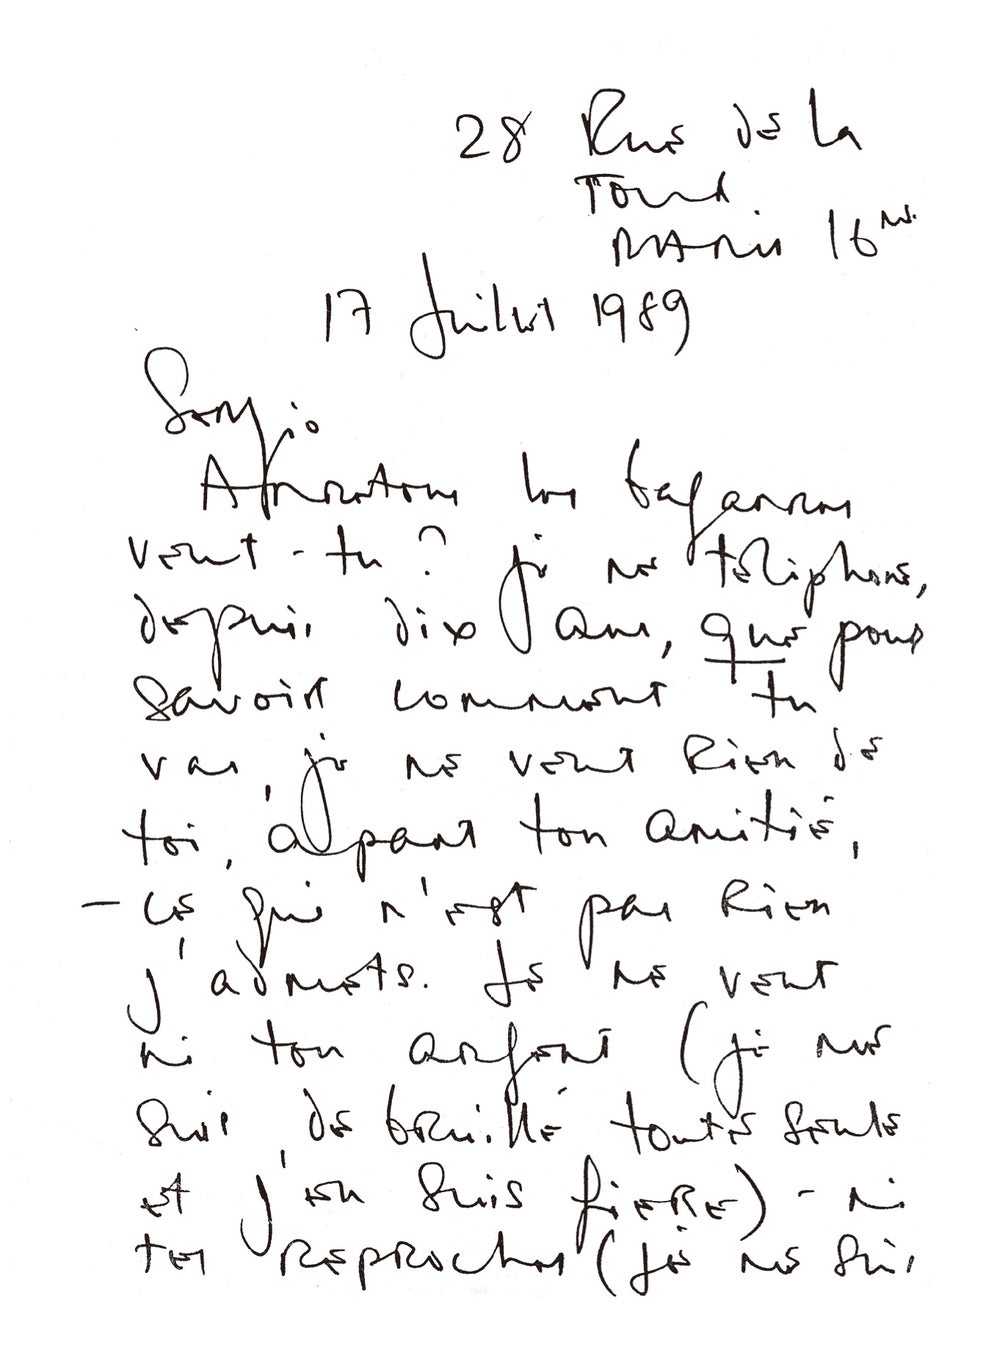 28 Rue de la
Tour
PARIS 16me.
17 Juillet 1989
Sergio
Arretons les bagarres
veux-tu? je ne téléphone,
depuis dix ans, que pour
savoir comment tu
vas, je ne veux Rien de
toi, àpart ton amitié,
- ce qui n'est pas Rien
j'admets. Je ne veux
ni ton argent (je me
suis débrouillé toute seule
et j'en suis fiERE) - ni
tes REPROches (je ne suis